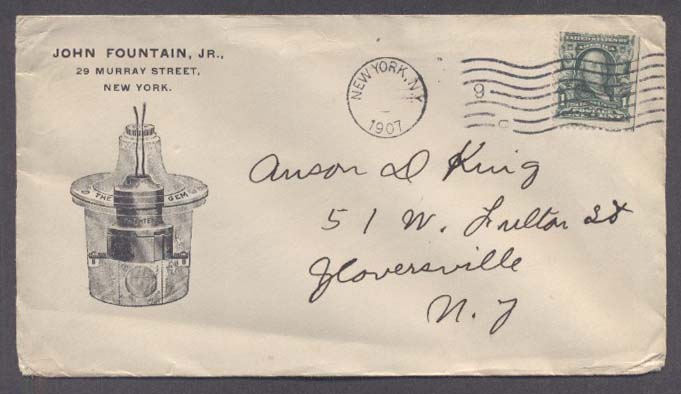 JOHN FOUNTAIN, JR.,
29 MURRAY STREET,
NEW YORK.
THE GEM
NEW YORK, N.Y.
1907
9
1
Anson D King
51 W. Fulton St
Gloversville
N. Y